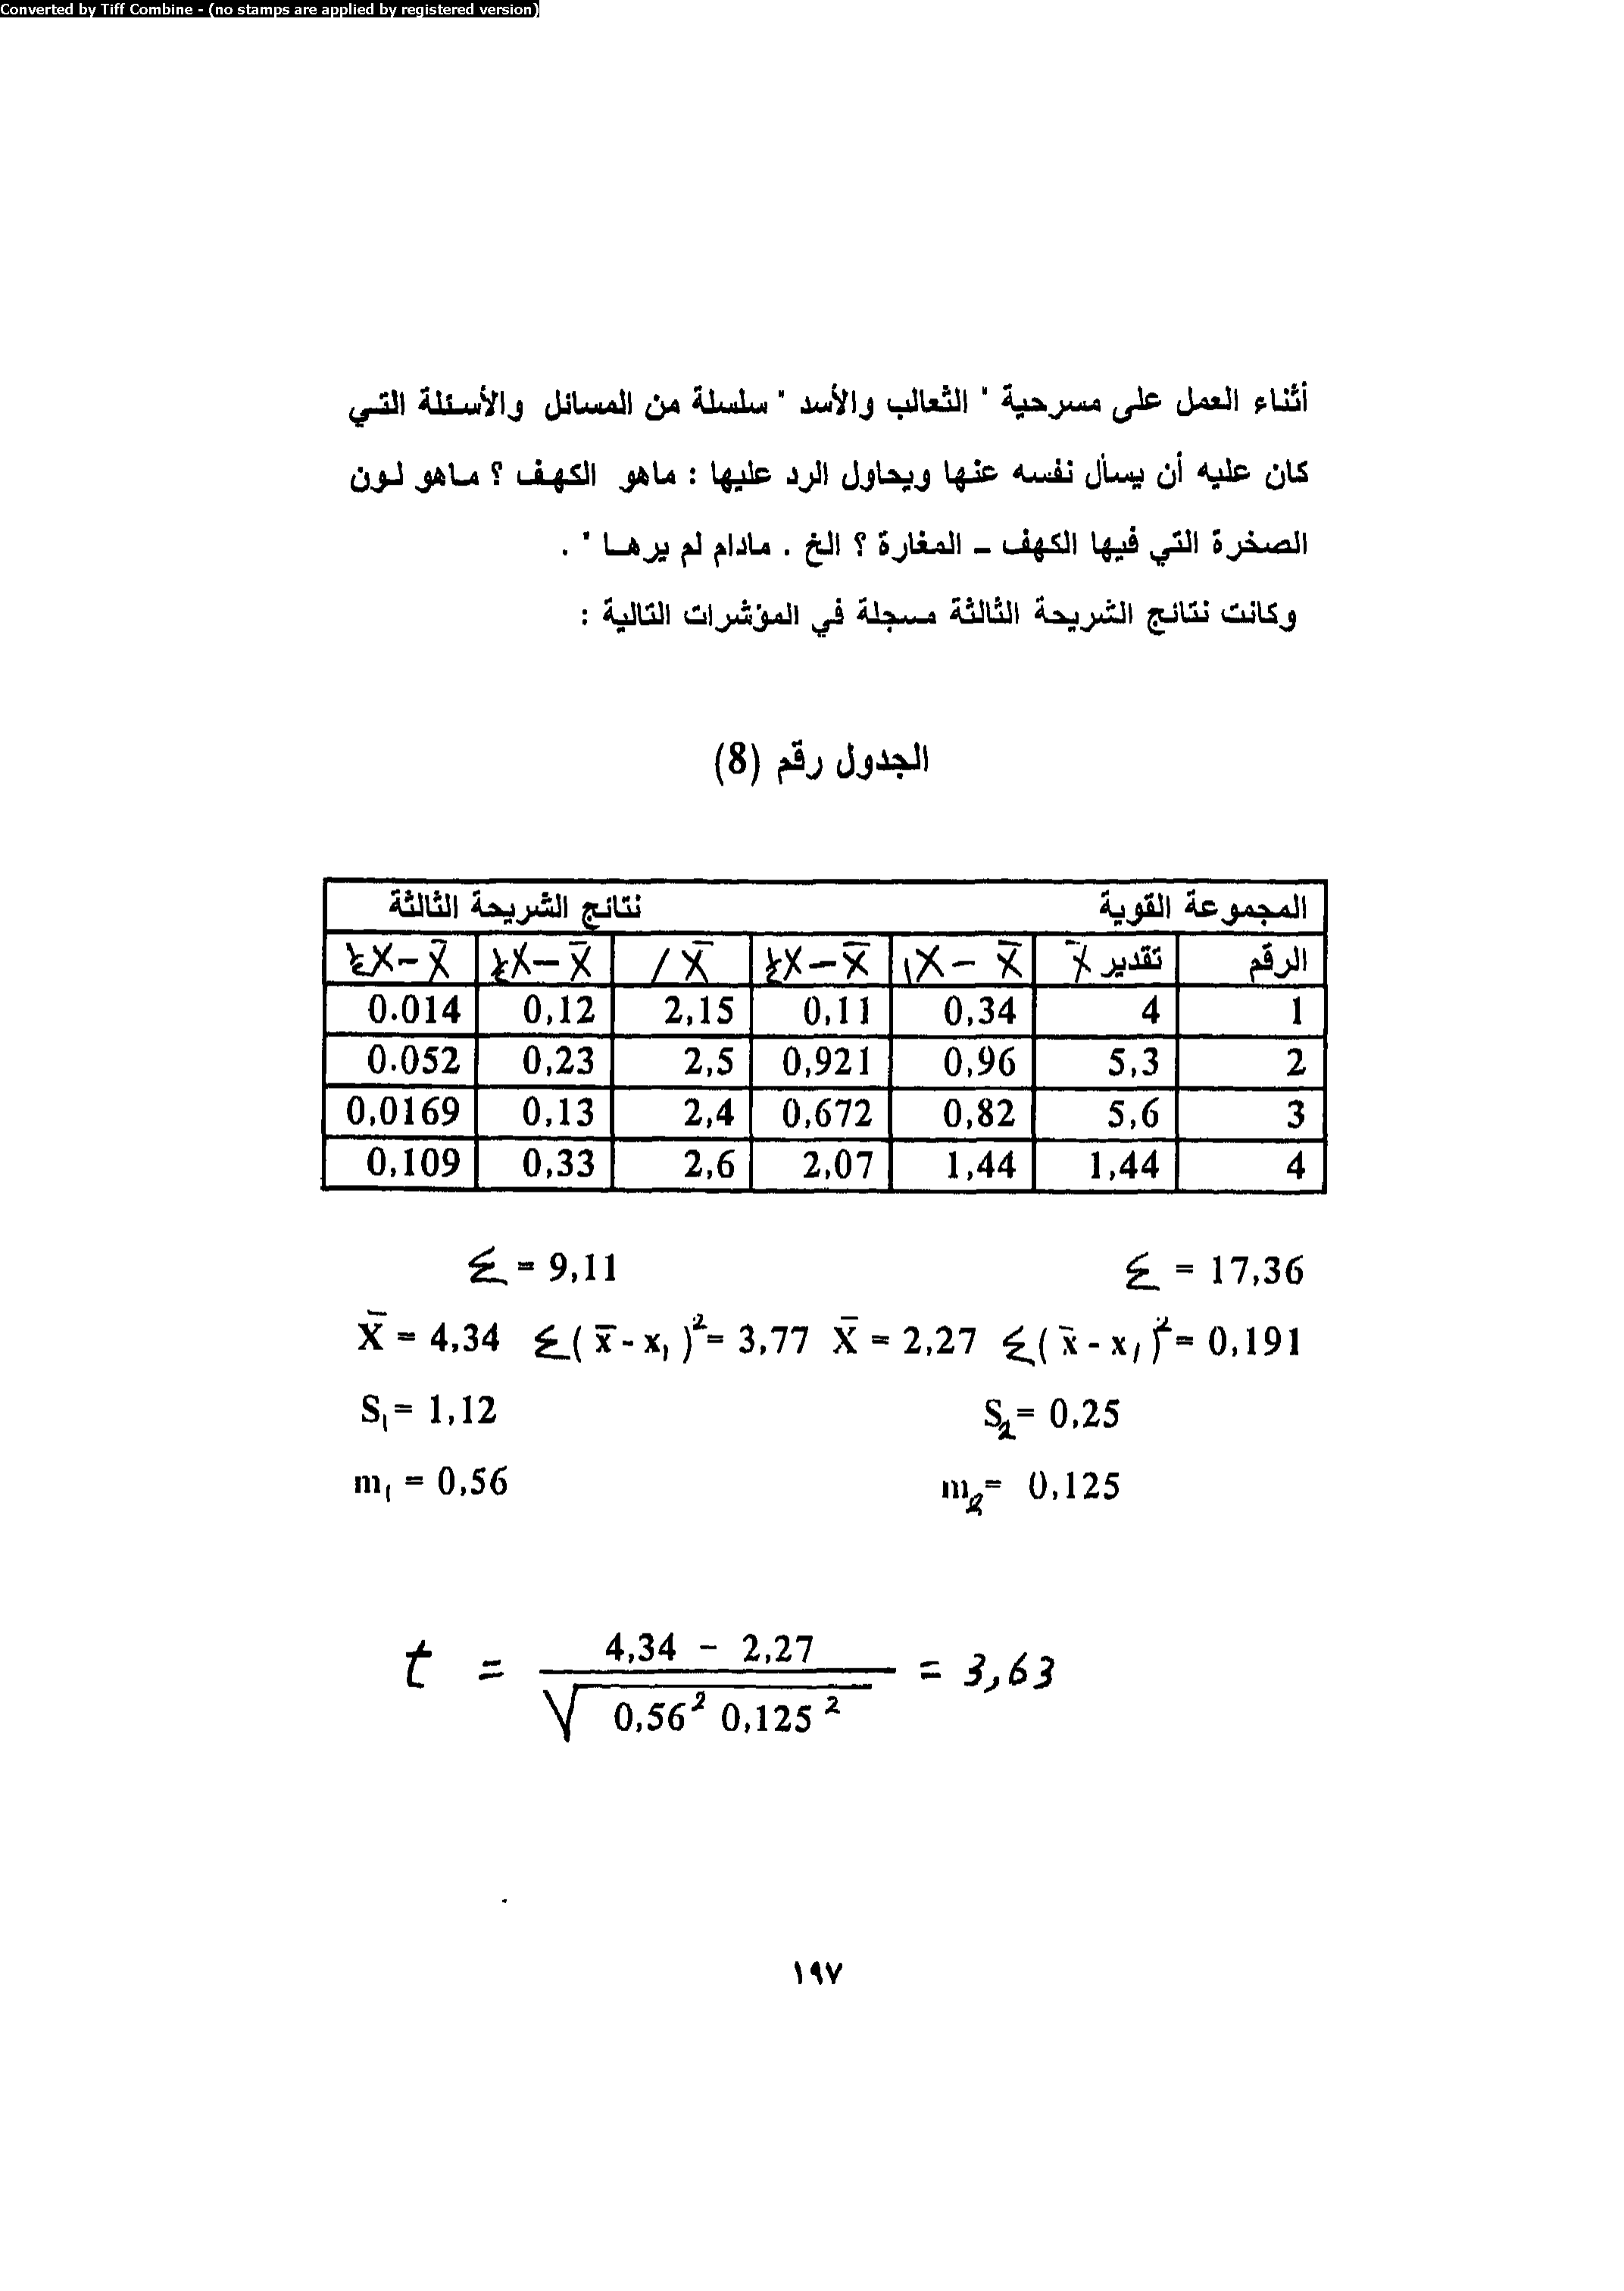 Converted by Tiff Combine - (no stamps are applied by registered version)
أثناء العمل على مسرحية " الثعالب والأسد " سلسلة من المسائل والأسئلة التي
كان عليه أن يسأل نفسه عنها ويحاول الرد عليها : ماهو الكهف ؟ ماهو لون
الصخرة التي فيها الكهف ـ المغارة ؟ الخ . مادام لم يرها " .
وكانت نتائج الشريحة الثالثة مسجلة في المؤشرات التالية :
الجدول رقم (8)
المجموعة القوية نتائج الشريحة الثالثة
الرقم تقدير X̄ X̄ – X₁ X̄ – X X̄ / X̄ – X X̄ – X
1 4 0,34 0,11 2,15 0,12 0.014
2 5,3 0,96 0,921 2,5 0,23 0.052
3 5,6 0,82 0,672 2,4 0,13 0,0169
4 1,44 1,44 2,07 2,6 0,33 0,109
Σ = 9,11 Σ = 17,36
X̄ = 4,34 Σ( x̄ - x₁ )² = 3,77 X̄ = 2,27 Σ( x̄ - x₁ )² = 0,191
S₁ = 1,12 S₂ = 0,25
m₁ = 0,56 m₂ = 0,125
t = 4,34 - 2,27 / √ 0,56² 0,125² = 3,63
١٩٧